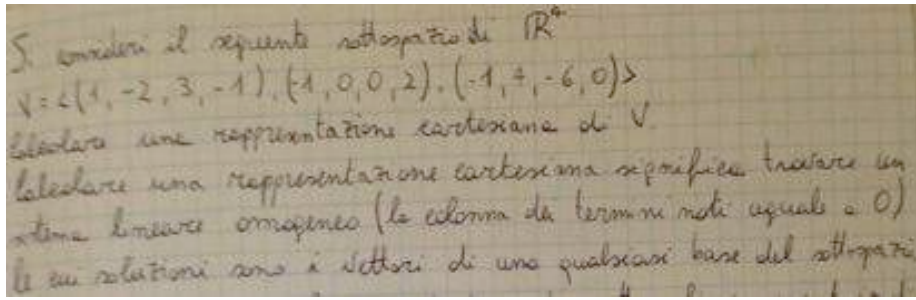 Si consideri il seguente sottospazio di ℝ⁴
V = <(1, -2, 3, -1), (-1, 0, 0, 2), (-1, 4, -6, 0)>
Calcolare una rappresentazione cartesiana di V.
Calcolare una rappresentazione cartesiana significa trovare un
sistema lineare omogeneo (la colonna dei termini noti uguale a 0)
le cui soluzioni sono i vettori di una qualsiasi base del sottospazio